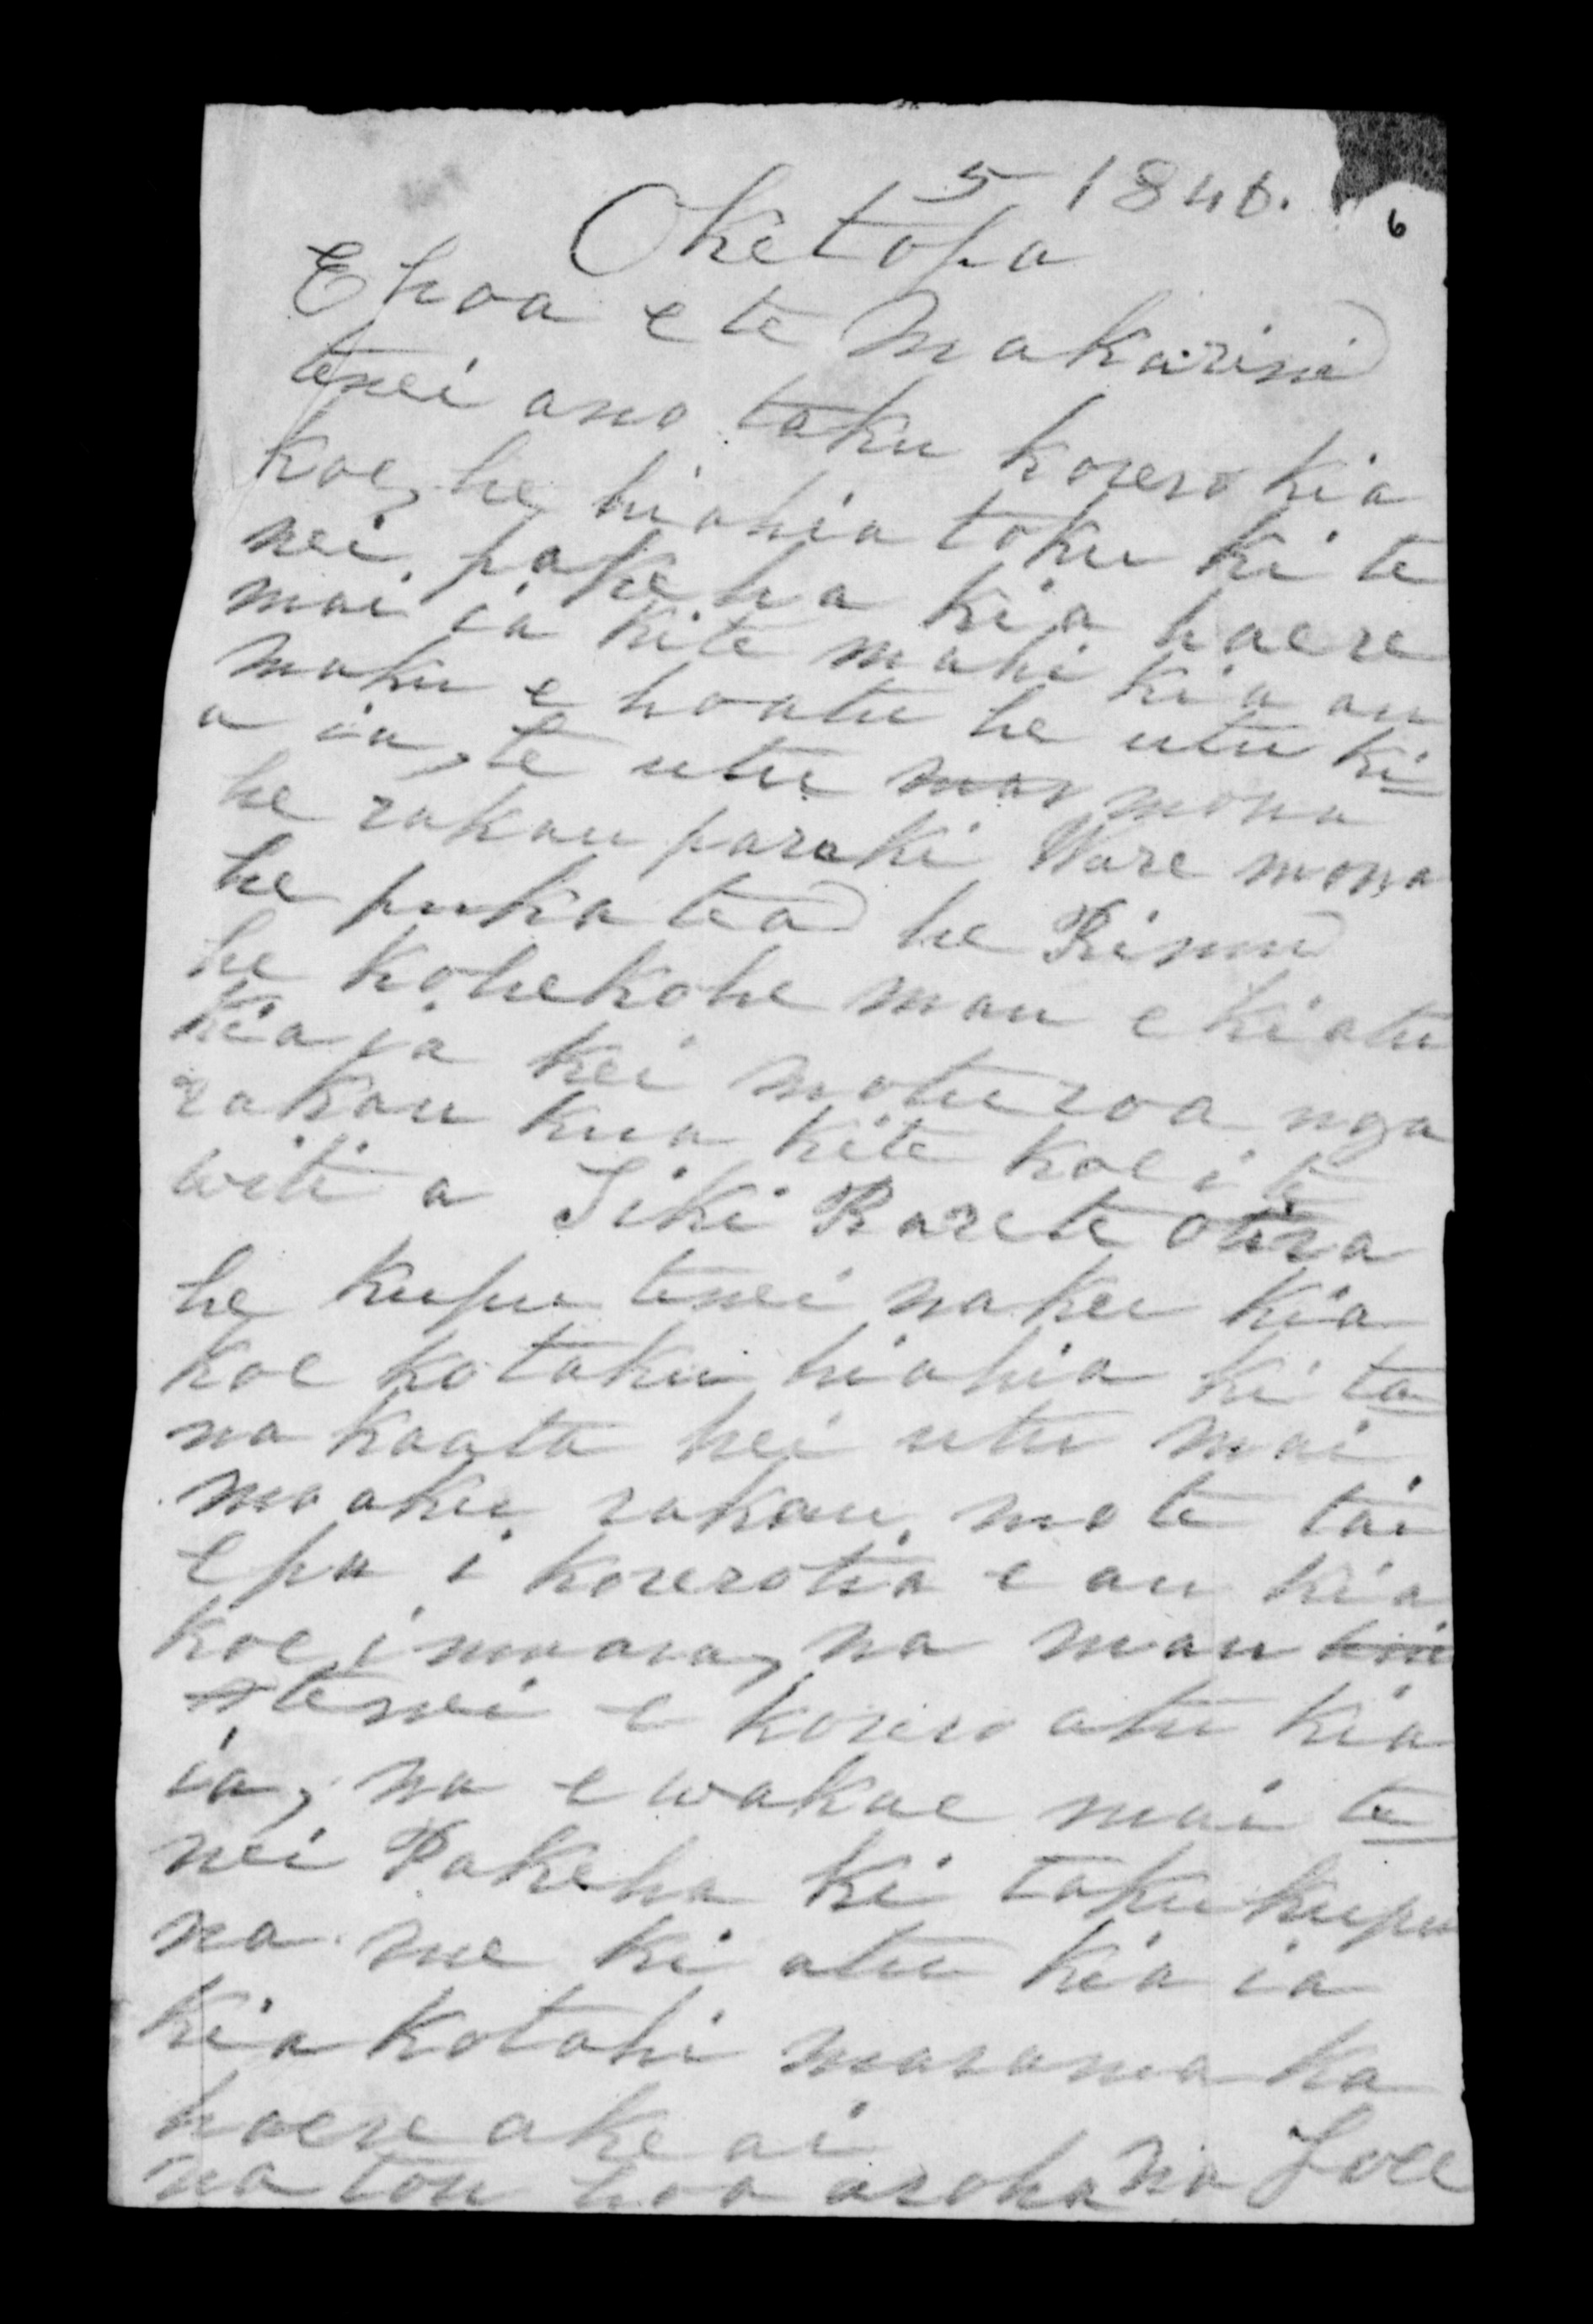 5 1846.
6
Oketopa
E hoa e te Makarini
tenei ano taku korero kia
koe, he hiahia toku ki te
nei pakeha kia haere
mai ia kite mahi kia au
maku e hoatu he utu ki
a ia, te utu mona
he rakau paraki Ware mona
he pukatea he Rimu
he kohekohe mau e kiatu
kia ia kei moturoa nga
rakau kua kite koe i te
witi a Tiki Parete otira
he kupu tenei naku kia
koe ko taku hiahia ki ta
na kaata hei utu mai
mo aku rakau, mo te tai
epa i korerotia e au kia
koe i mua ra, na mau
tenei e korero atu kia
ia, na e wakae mai te
nei Pakeha ki taku kupu
na me ki atu kia ia
kia kotahi marama ka
haere ake ai
na tou hoa aroha na